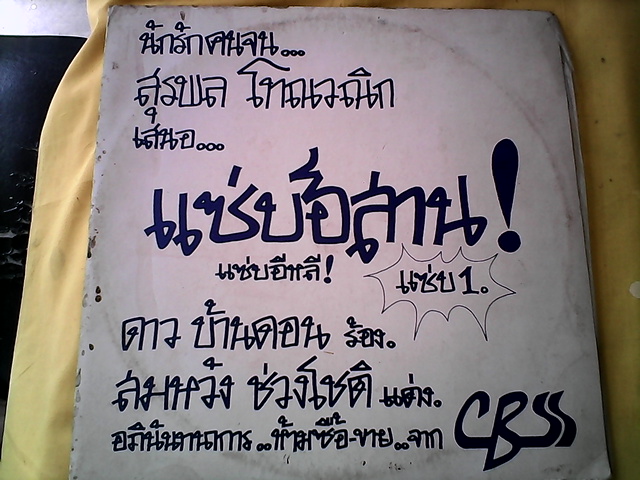 นักรักคนจน...
สุรพล โทณวณิก
เสนอ...
แซ่บอีสาน!
แซ่บอีหลี!
แซ่บ 1.
ดาว บ้านดอน ร้อง.
สมหวัง ช่วงโชติ แต่ง.
อภินันทนาการ..ห้ามซื้อ-ขาย..จาก CBS